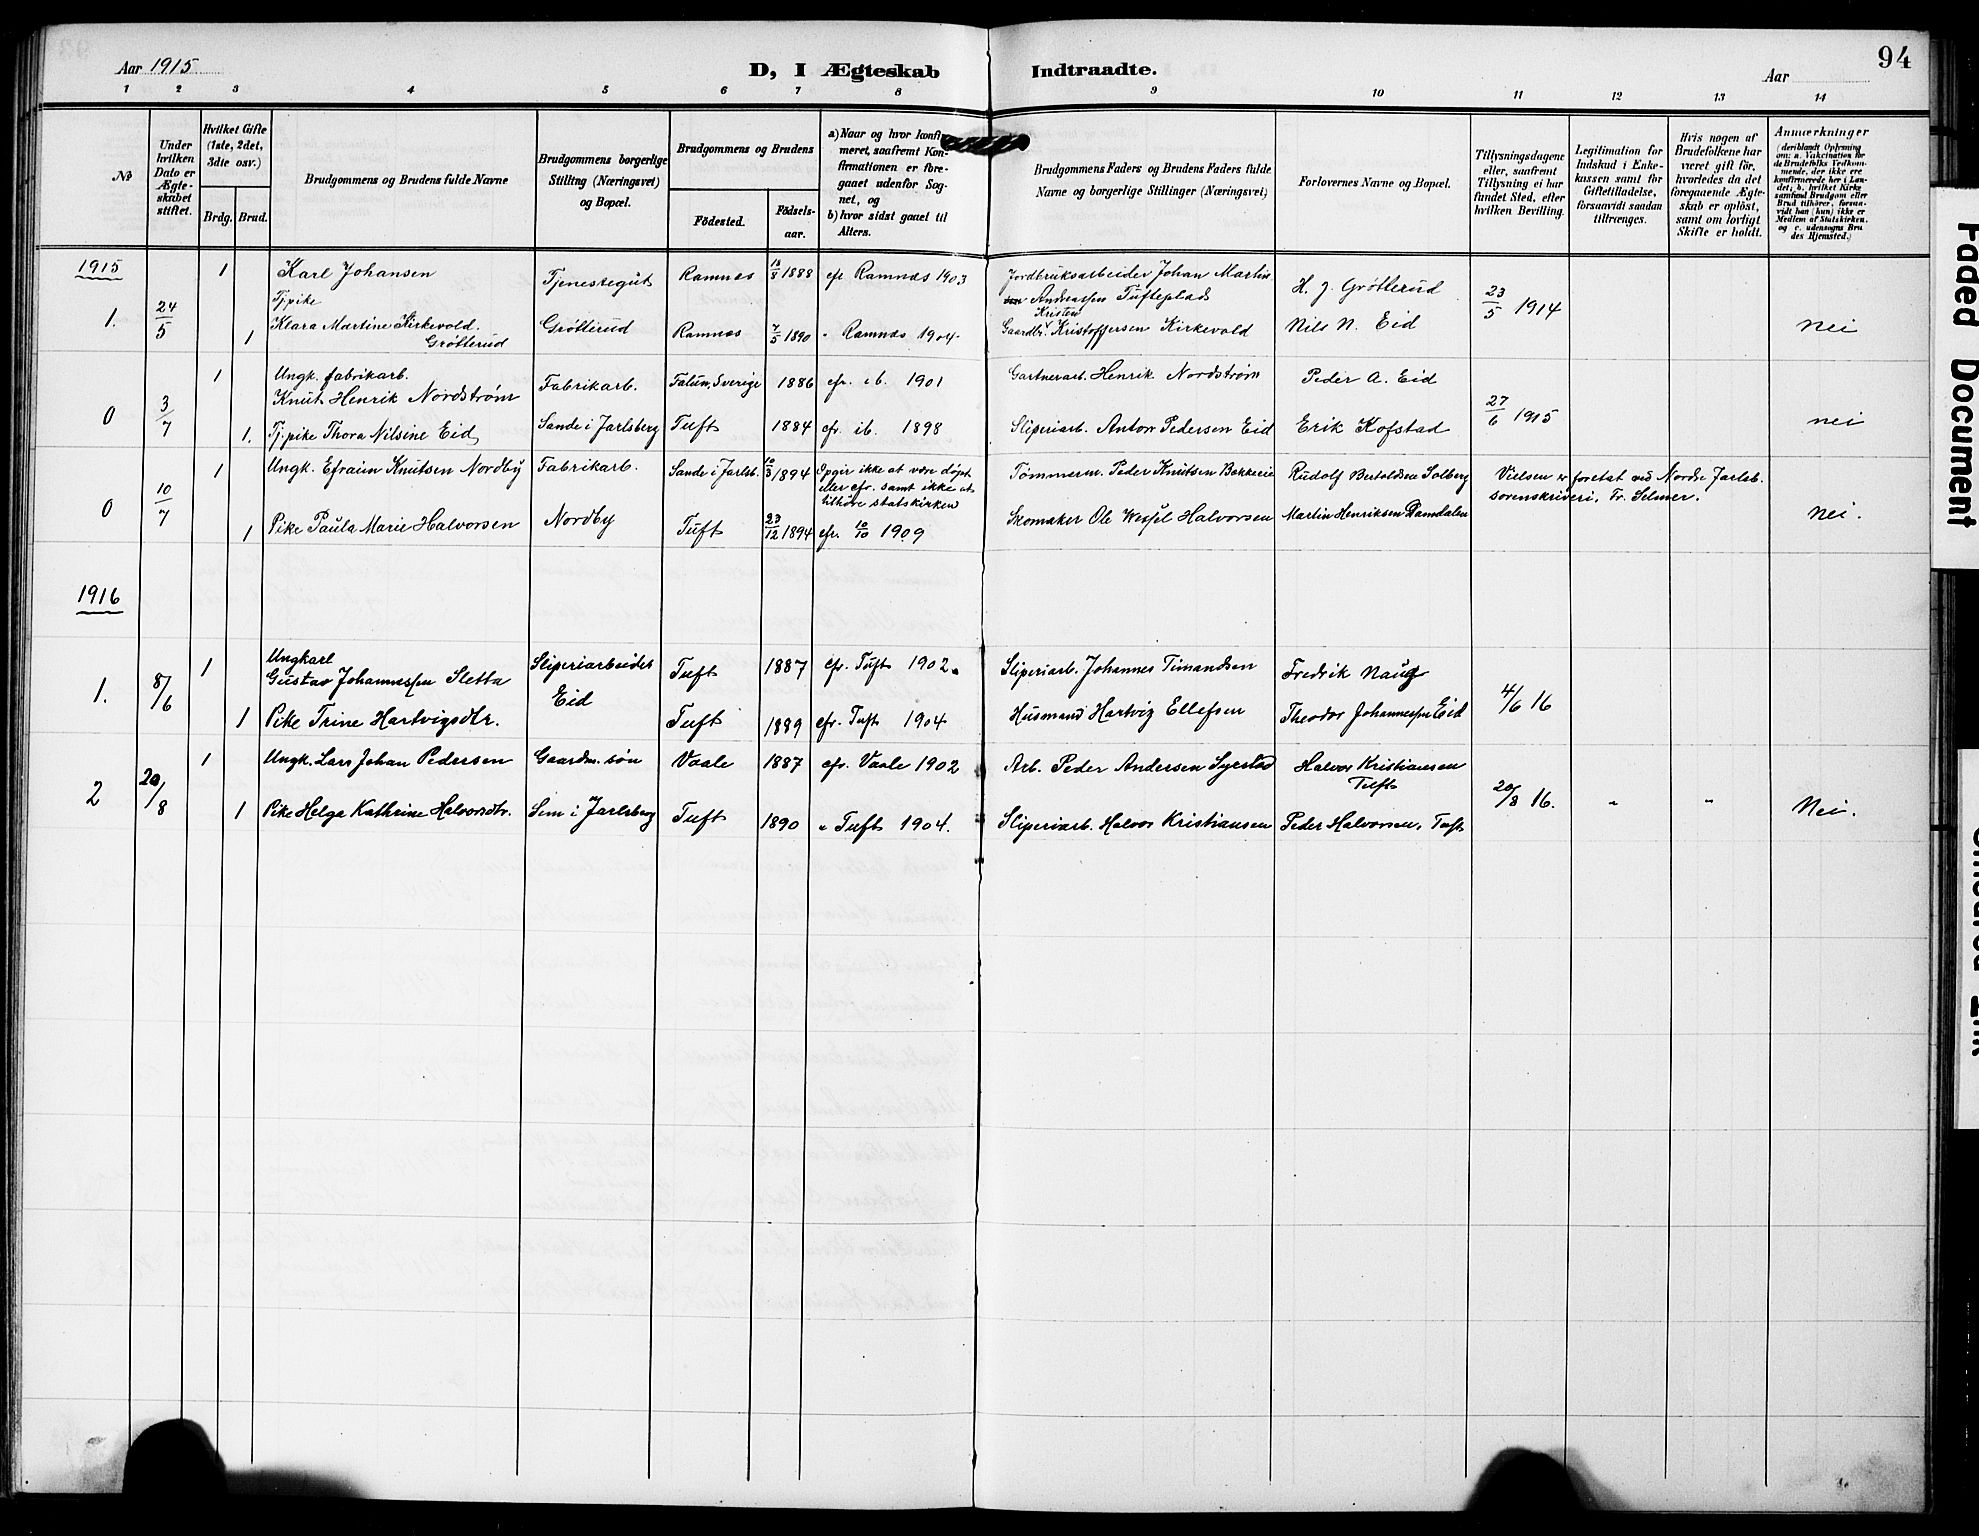 94
Aar 1915
D, I Ægteskab Indtraadte.
Aar
1 2 3 4 5 6 7 8 9 10 11 12 13 14
No
Under hvilken Dato er Ægteskabet stiftet.
Hvilket Gifte (1ste, 2det, 3die osv.)
Brdg. Brud.
Brudgommens og Brudens fulde Navne
Brudgommens borgerlige Stilling (Næringsvei) og Bopæl.
Brudgommens og Brudens
Födested.
Födsels-aar.
a) Naar og hvor konfirmeret, saafremt Konfirmationen er foregaaet udenfor Sognet, og
b) hvor sidst gaaet til Alters.
Brudgommens Faders og Brudens Faders fulde Navne og borgerlige Stillinger (Næringsvei)
Forlovernes Navne og Bopæl.
Tillysningsdagene eller, saafremt Tillysning ei har fundet Sted, efter hvilken Bevilling.
Legitimation for Indskud i Enkekassen samt for Giftetilladelse, forsaavidt saadan tiltrænges.
Hvis nogen af Brudefolkene har været gift för, hvorledes da det foregaaende Ægteskab er oplöst, samt om lovligt Skifte er holdt.
Anmærkninger (deriblandt Oplysning om: a. Vakcination for de Brudefolks Vedkommende, der ikke ere konfirmerede her i Landet; b. hvilket Kirkesamfund Brudgom eller Brud tilhörer, forsaavidt han (hun) ikke er Medlem af Statskirken, og c. udensogns Brudes Hjemsted.)
1915
1 Karl Johansen Tjenestegut Ramnes 1888 cfr Ramnes 1903 Jordbruksarbeider Johan Martin
Andreassen Tufteplads H. J. Grøtterud
1. 24/5 Tj.pike 23/5 1914
Kristen
1 Klara Martine Kirkevold. Grøtterud Ramnes 7/5 1890 " Ramnes 1904. Gaardbr. Kristoffersen Kirkevold Nils N. Eid nei
Grøtterud
1 Ungk. fabrikarb.
Knut Henrik Nordstrøm Fabrikarb. Falun, Sverige 1886 cfr. ib. 1901 Gartnerarb. Henrik Nordstrøm Peder A. Eid
0 3/7 27/6 1915
1. Tj.pike Thora Nilsine Eid Sande i Jarlsberg Tuft 1884 cfr. ib. 1898 Sliperiarb. Anton Pedersen Eid Erik Kofstad nei
1 Ungk. Efraim Knutsen Nordby Fabrikarb. Sande i Jarlsb. 10/3 1894 Opgir ikke at være døpt Tømmerm. Peder Knutsen Bekkeveie Rudolf Bertoldsen Solberg Vielsen er foretat ved Nordre Jarlsb.
eller cfr. samt ikke at sorenskriveri, Fr. Selmer.
tilhøre statskirken
0 10/7
1 Pike Paula Marie Halvorsen Nordby Tuft 23/12 1894 cfr. 10/10 1909 Skomaker Ole Wessel Halvorsen Martin Henriksen Damdalen nei.
1916
1 Ungkarl
Gustav Johannessen Sletta Sliperiarbeider Tuft 1887 cfr. Tuft 1902. Sliperiarb. Johannes Timandsen Fredrik Naug
1. 8/6 Eid 4/6 16
1 Pike Trine Hartvigsdtr. Tuft 1889 cfr. Tuft 1904 Husmand Hartvig Ellefsen Theodor Johannessen Eid
1 Ungk. Lars Johan Pedersen Gaardm. søn Vaale 1887 cfr. Vaale 1902 Arb. Peder Andersen Syrstad Halvor Kristiansen
Tuft
2 20/8 20/8 16. " "
1 Pike Helga Kathrine Halvorsdtr. Sem i Jarlsberg Tuft 1890 " Tuft 1904. Sliperiarb. Halvor Kristiansen Peder Halvorsen, Tuft Nei.
Faded Document